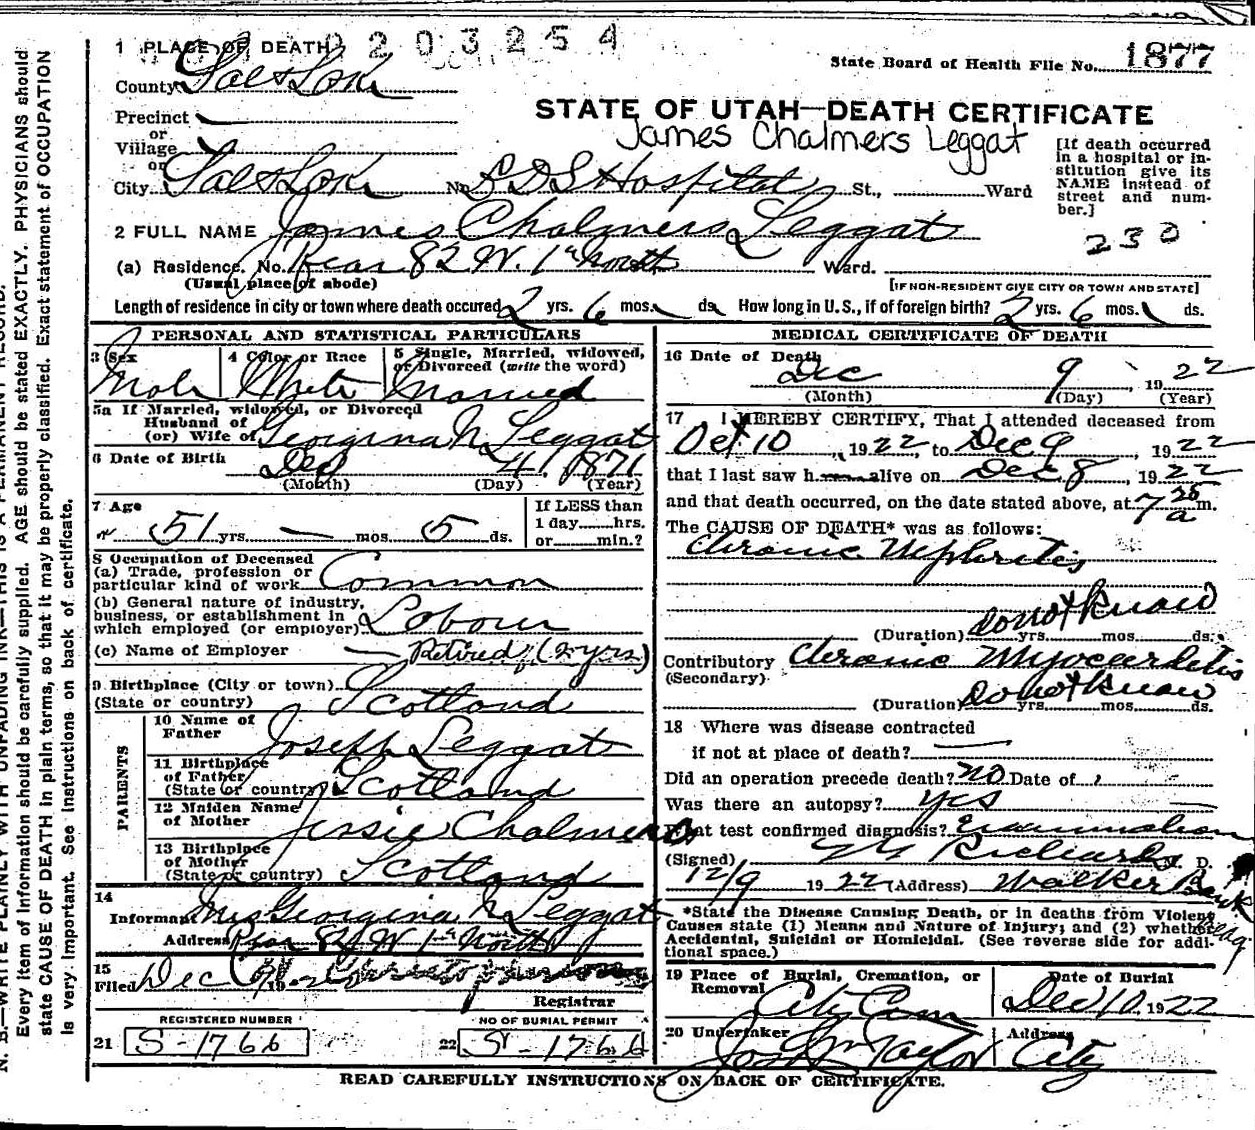 1 PLACE OF DEATH
0203254
State Board of Health File No. 1877
County Salt Lake
Precinct
or
Village
or
STATE OF UTAH—DEATH CERTIFICATE
James Chalmers Leggat
[If death occurred in a hospital or institution give its NAME instead of street and number.]
City Salt Lake No. LDS Hospital St., Ward
2 FULL NAME James Chalmers Leggat
230
(a) Residence. No. Rear 82 W. 1st North Ward.
(Usual place of abode) [IF NON-RESIDENT GIVE CITY OR TOWN AND STATE]
Length of residence in city or town where death occured 2 yrs. 6 mos. ds. How long in U.S., if of foreign birth? 2 yrs. 6 mos. ds.
PERSONAL AND STATISTICAL PARTICULARS
3 Sex Male
4 Color or Race White
5 Single, Married, widowed, or Divorced (write the word) Married
5a If Married, widowed, or Divorced
Husband of
(or) Wife of Georgina N Leggat
6 Date of Birth Dec 4, 1871
(Month) (Day) (Year)
7 Age 51 yrs. — mos. 5 ds.
If LESS than
1 day hrs.
or min.?
8 Occupation of Deceased
(a) Trade, profession or
particular kind of work Common
(b) General nature of industry,
business, or establishment in
which employed (or employer) Labour
(c) Name of Employer — Retired (2 yrs)
9 Birthplace (City or town)
(State or country) Scotland
PARENTS
10 Name of
Father Joseph Leggat
11 Birthplace
of Father
(State or country) Scotland
12 Maiden Name
of Mother Jessie Chalmers
13 Birthplace
of Mother
(State or country) Scotland
14
Informant Mrs Georgina N Leggat
Address Rear 82 W 1st North
15
Filed Dec 19
Registrar
REGISTERED NUMBER NO OF BURIAL PERMIT
21 S-1766 22 S-1766
MEDICAL CERTIFICATE OF DEATH
16 Date of Death
Dec 9, 1922
(Month) (Day) (Year)
17 I HEREBY CERTIFY, That I attended deceased from
Oct 10, 1922, to Dec 9, 1922
that I last saw h alive on Dec 8, 1922
and that death occurred, on the date stated above, at 7 25 a m.
The CAUSE OF DEATH* was as follows:
Chronic Nephritis
(Duration) do not know yrs. mos. ds.
Contributory Chronic Myocarditis
(Secondary)
(Duration) do not know yrs. mos. ds.
18 Where was disease contracted
if not at place of death? —
Did an operation precede death? no Date of
Was there an autopsy? yes
What test confirmed diagnosis? Examination
(Signed) Richards M. D.
12/9 1922 (Address) Walker Bank Bldg
*State the Disease Causing Death, or in deaths from Violent
Causes state (1) Means and Nature of Injury; and (2) whether
Accidental, Suicidal or Homicidal. (See reverse side for addi-
tional space.)
19 Place of Burial, Cremation, or
Removal City Cem
Date of Burial
Dec 10, 1922
20 Undertaker Jos Wm Taylor
Address City
READ CAREFULLY INSTRUCTIONS ON BACK OF CERTIFICATE.
N. B.—WRITE PLAINLY WITH UNFADING INK—THIS IS A PERMANENT RECORD.
Every item of information should be carefully supplied. AGE should be stated EXACTLY. PHYSICIANS should
state CAUSE OF DEATH in plain terms, so that it may be properly classified. Exact statement of OCCUPATION
is very important. See instructions on back of certificate.